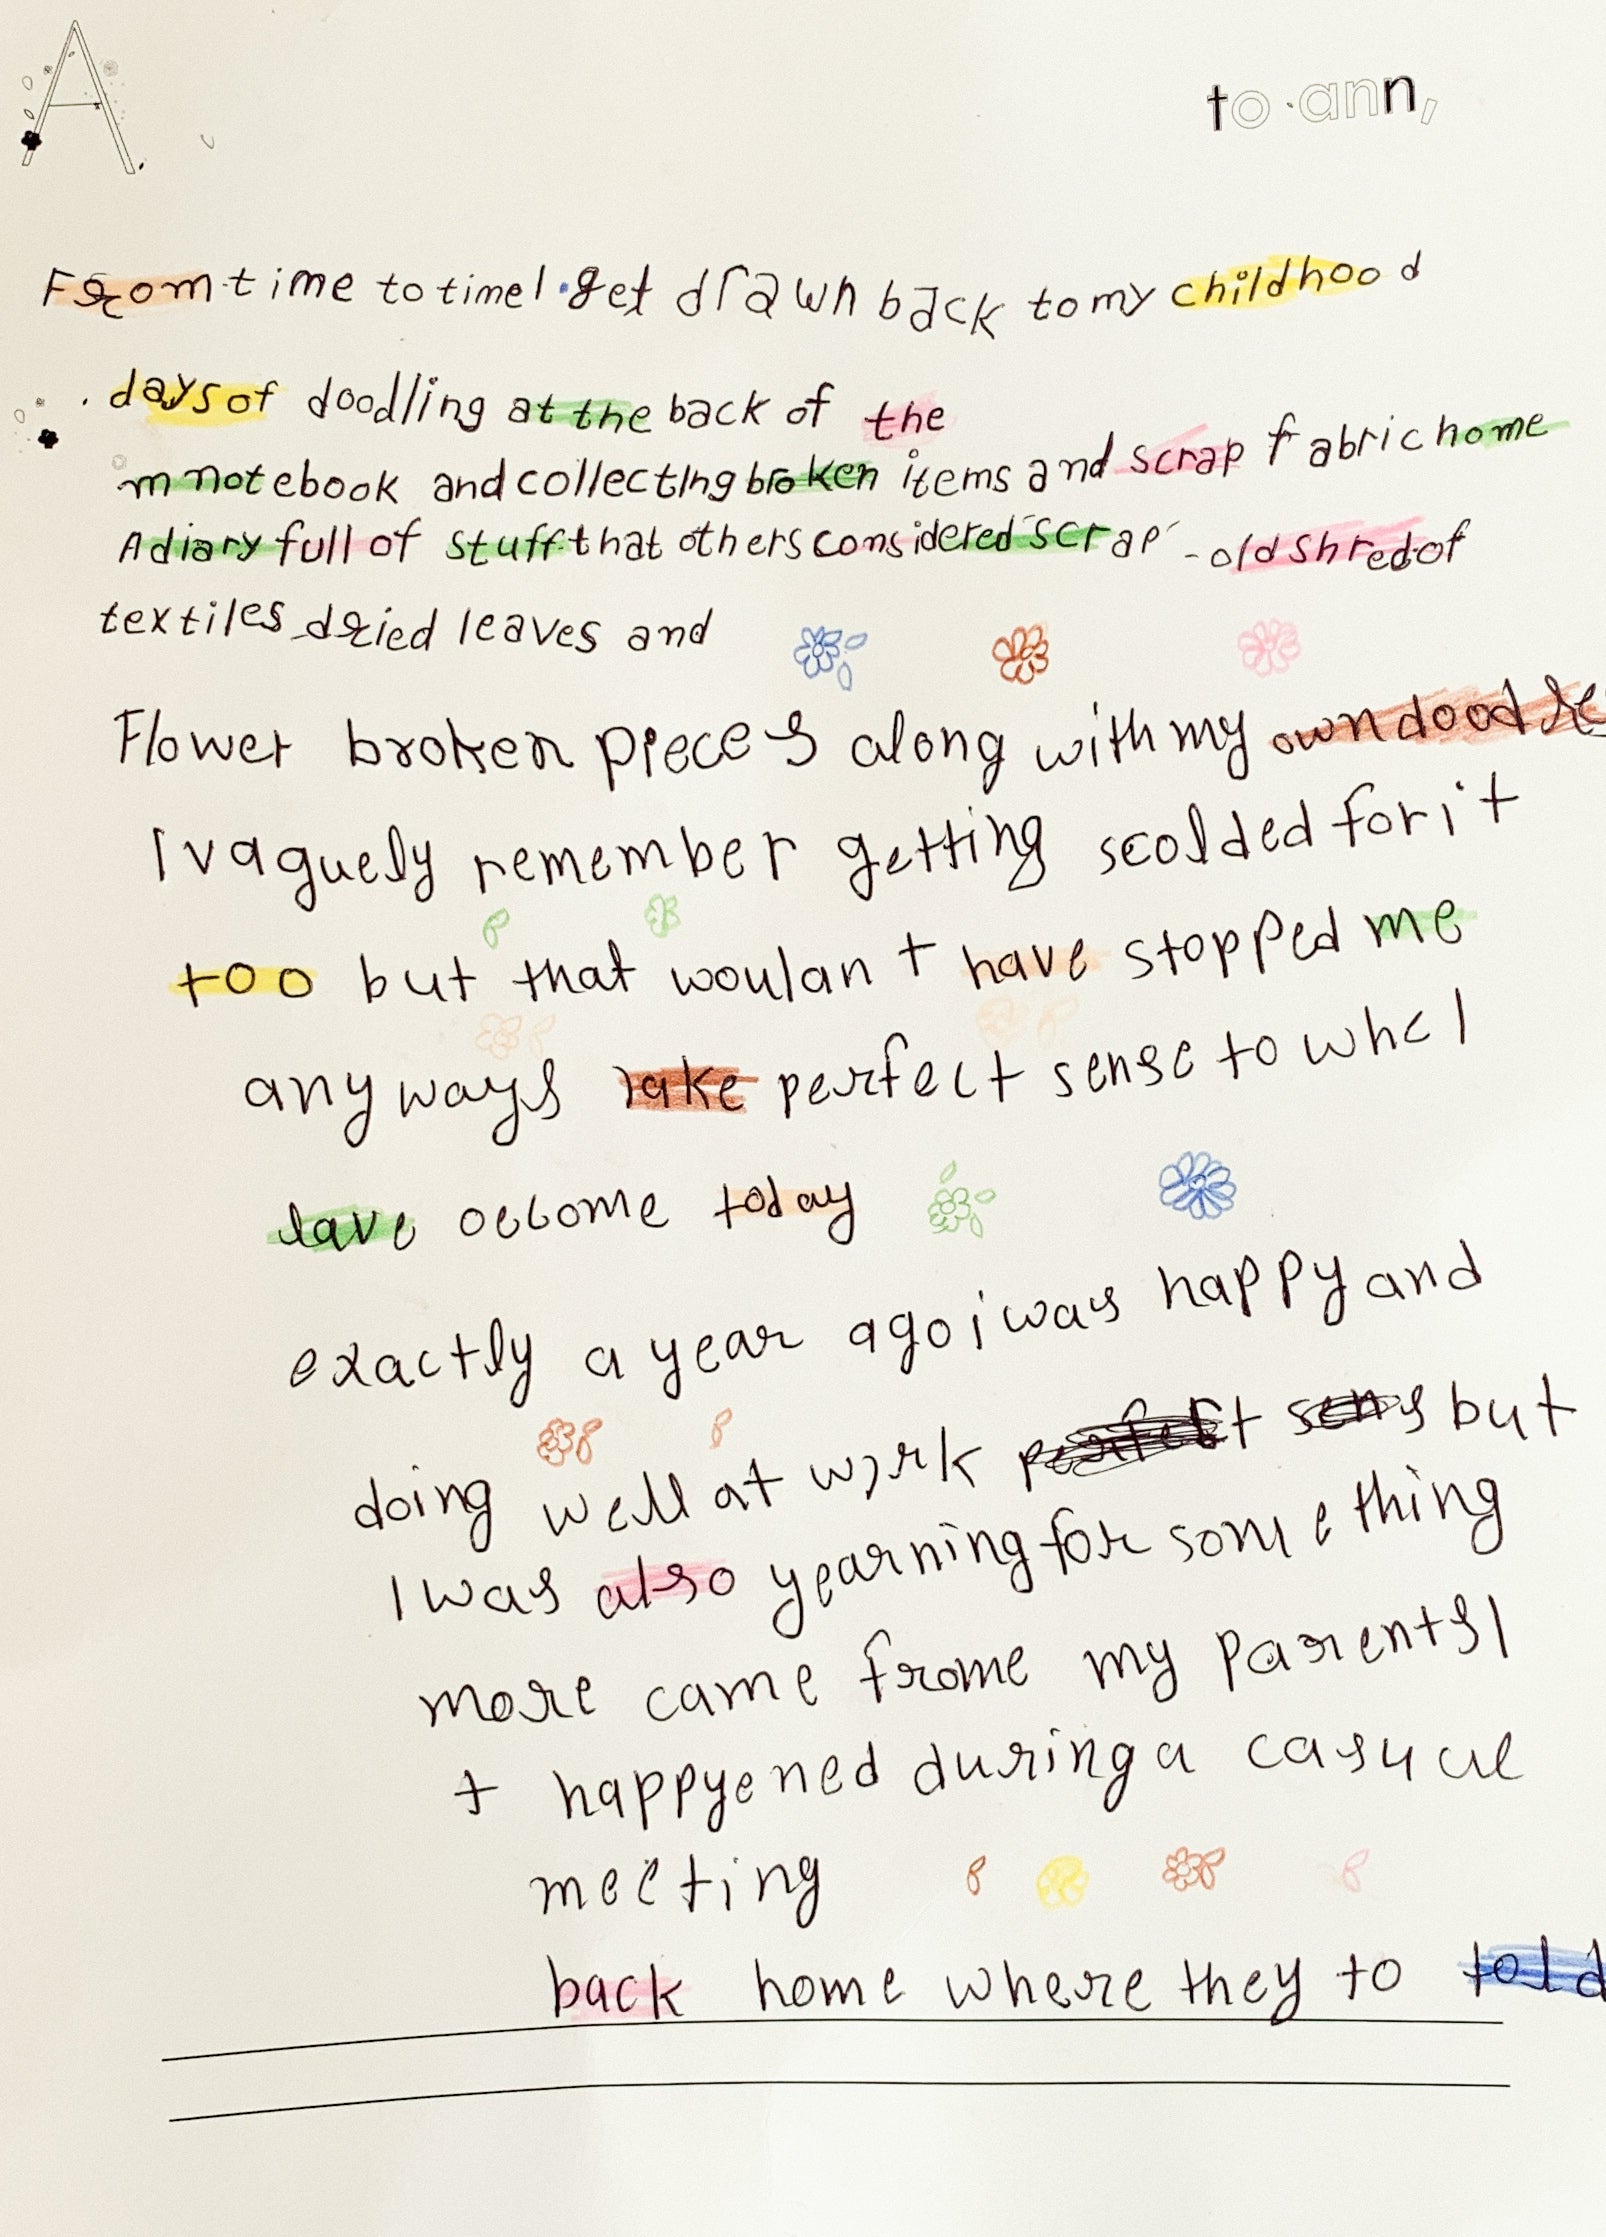 A
to ann,
From time to time I get drawn back to my childhood
days of doodling at the back of the
m notebook and collecting broken items and scrap fabric home
A diary full of stuff that others considered "scrap" - old shred of
textiles dried leaves and
Flower broken pieces along with my own doodle
I vaguely remember getting scolded for it
too but that woulan t have stopped me
anyways take perfect sense to whc I
lave occome today
exactly a year ago i was happy and
doing well at work perfect sens but
I was also yearning for some thing
more came frome my parents I
t happyened during a casual
meeting
back home where they to told